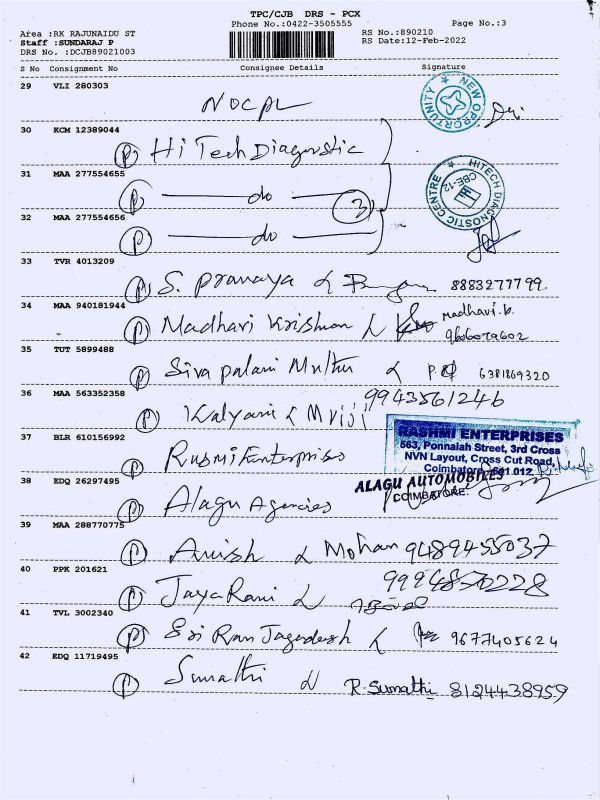 TPC/CJB DRS - PCX
Phone No.:0422-3505555
Page No.:3
Area :RK RAJUNAIDU ST
RS No.:890210
Staff :SUNDARAJ P
RS Date:12-Feb-2022
DRS No. :DCJB89021003
S No Consignment No Consignee Details Signature
29 VLI 280303
NOCPL
NEW OPPORTUNITY
30 KCM 12389044
P Hi Tech Diagnostic
31 MAA 277554655
P do 3
HITECH DIAGNOSTIC CENTRE
CBE-12
32 MAA 277554656
P do
33 TVR 4013209
P S. Pranaya & 8883277799
34 MAA 940181944
P Madhavi Krishnan & madhavi.k.
9666079602
35 TUT 5899488
P Siva palani Muthu & 6381869320
36 MAA 563352358
P Kalyani & M Viji 9943561246
37 BLR 610156992
P Rubmi Enterprises
RASHMI ENTERPRISES
563, Ponnaiah Street, 3rd Cross
NVN Layout, Cross Cut Road,
Coimbatore - 641 012.
38 EDQ 26297495
P Alagu Agencies
ALAGU AUTOMOBILES
COIMBATORE.
39 MAA 288770775
P Anish & Mohan 9489455037
40 PPK 201621
P Jaya Rani & 9994870228
41 TVL 3002340
P Sri Ram Jagadesh & 9677405624
42 EDQ 11719495
P Sumathi & R. Sumathi 8124438959